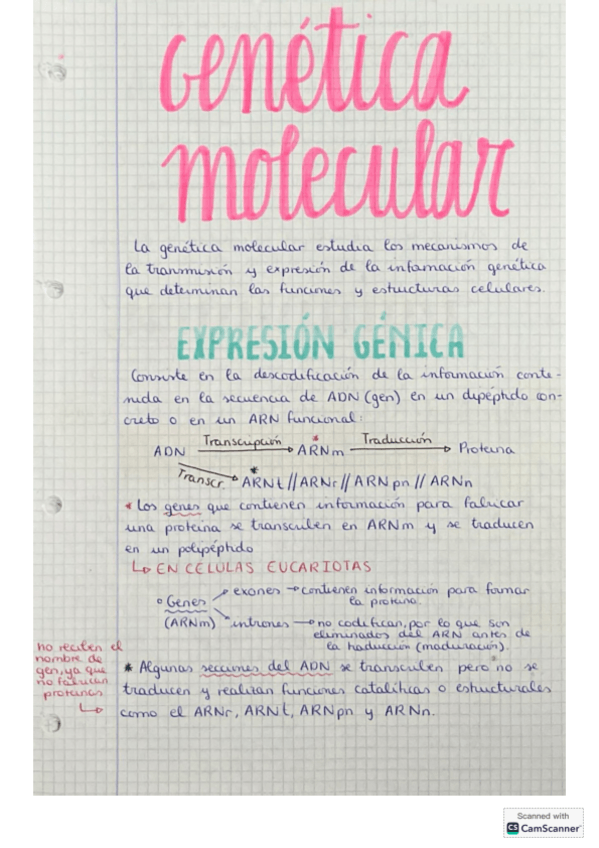 Genética
molecular
La genética molecular estudia los mecanismos de
la transmisión y expresión de la información genética
que determinan las funciones y estructuras celulares.
EXPRESIÓN GÉNICA
Consiste en la descodificación de la información conte-
nida en la secuencia de ADN (gen) en un dipéptido con-
creto o en un ARN funcional:
ADN Transcripción → * ARNm Traducción → Proteína
Transcr. → * ARNt // ARNr // ARNpn // ARNn
* Los genes que contienen información para fabricar
una proteína se transcriben en ARNm y se traducen
en un polipéptido
↳ EN CÉLULAS EUCARIOTAS
exones → contienen información para formar
la proteína.
° Genes
(ARNm) intrones → no codifican, por lo que son
eliminados del ARN antes de
la traducción (maduración).
no reciben el
nombre de
gen, ya que
no fabrican
proteínas
↳
* Algunas secciones del ADN se transcriben pero no se
traducen y realizan funciones catalíticas o estructurales
como el ARNr, ARNt, ARNpn y ARNn.
Scanned with
CS CamScanner